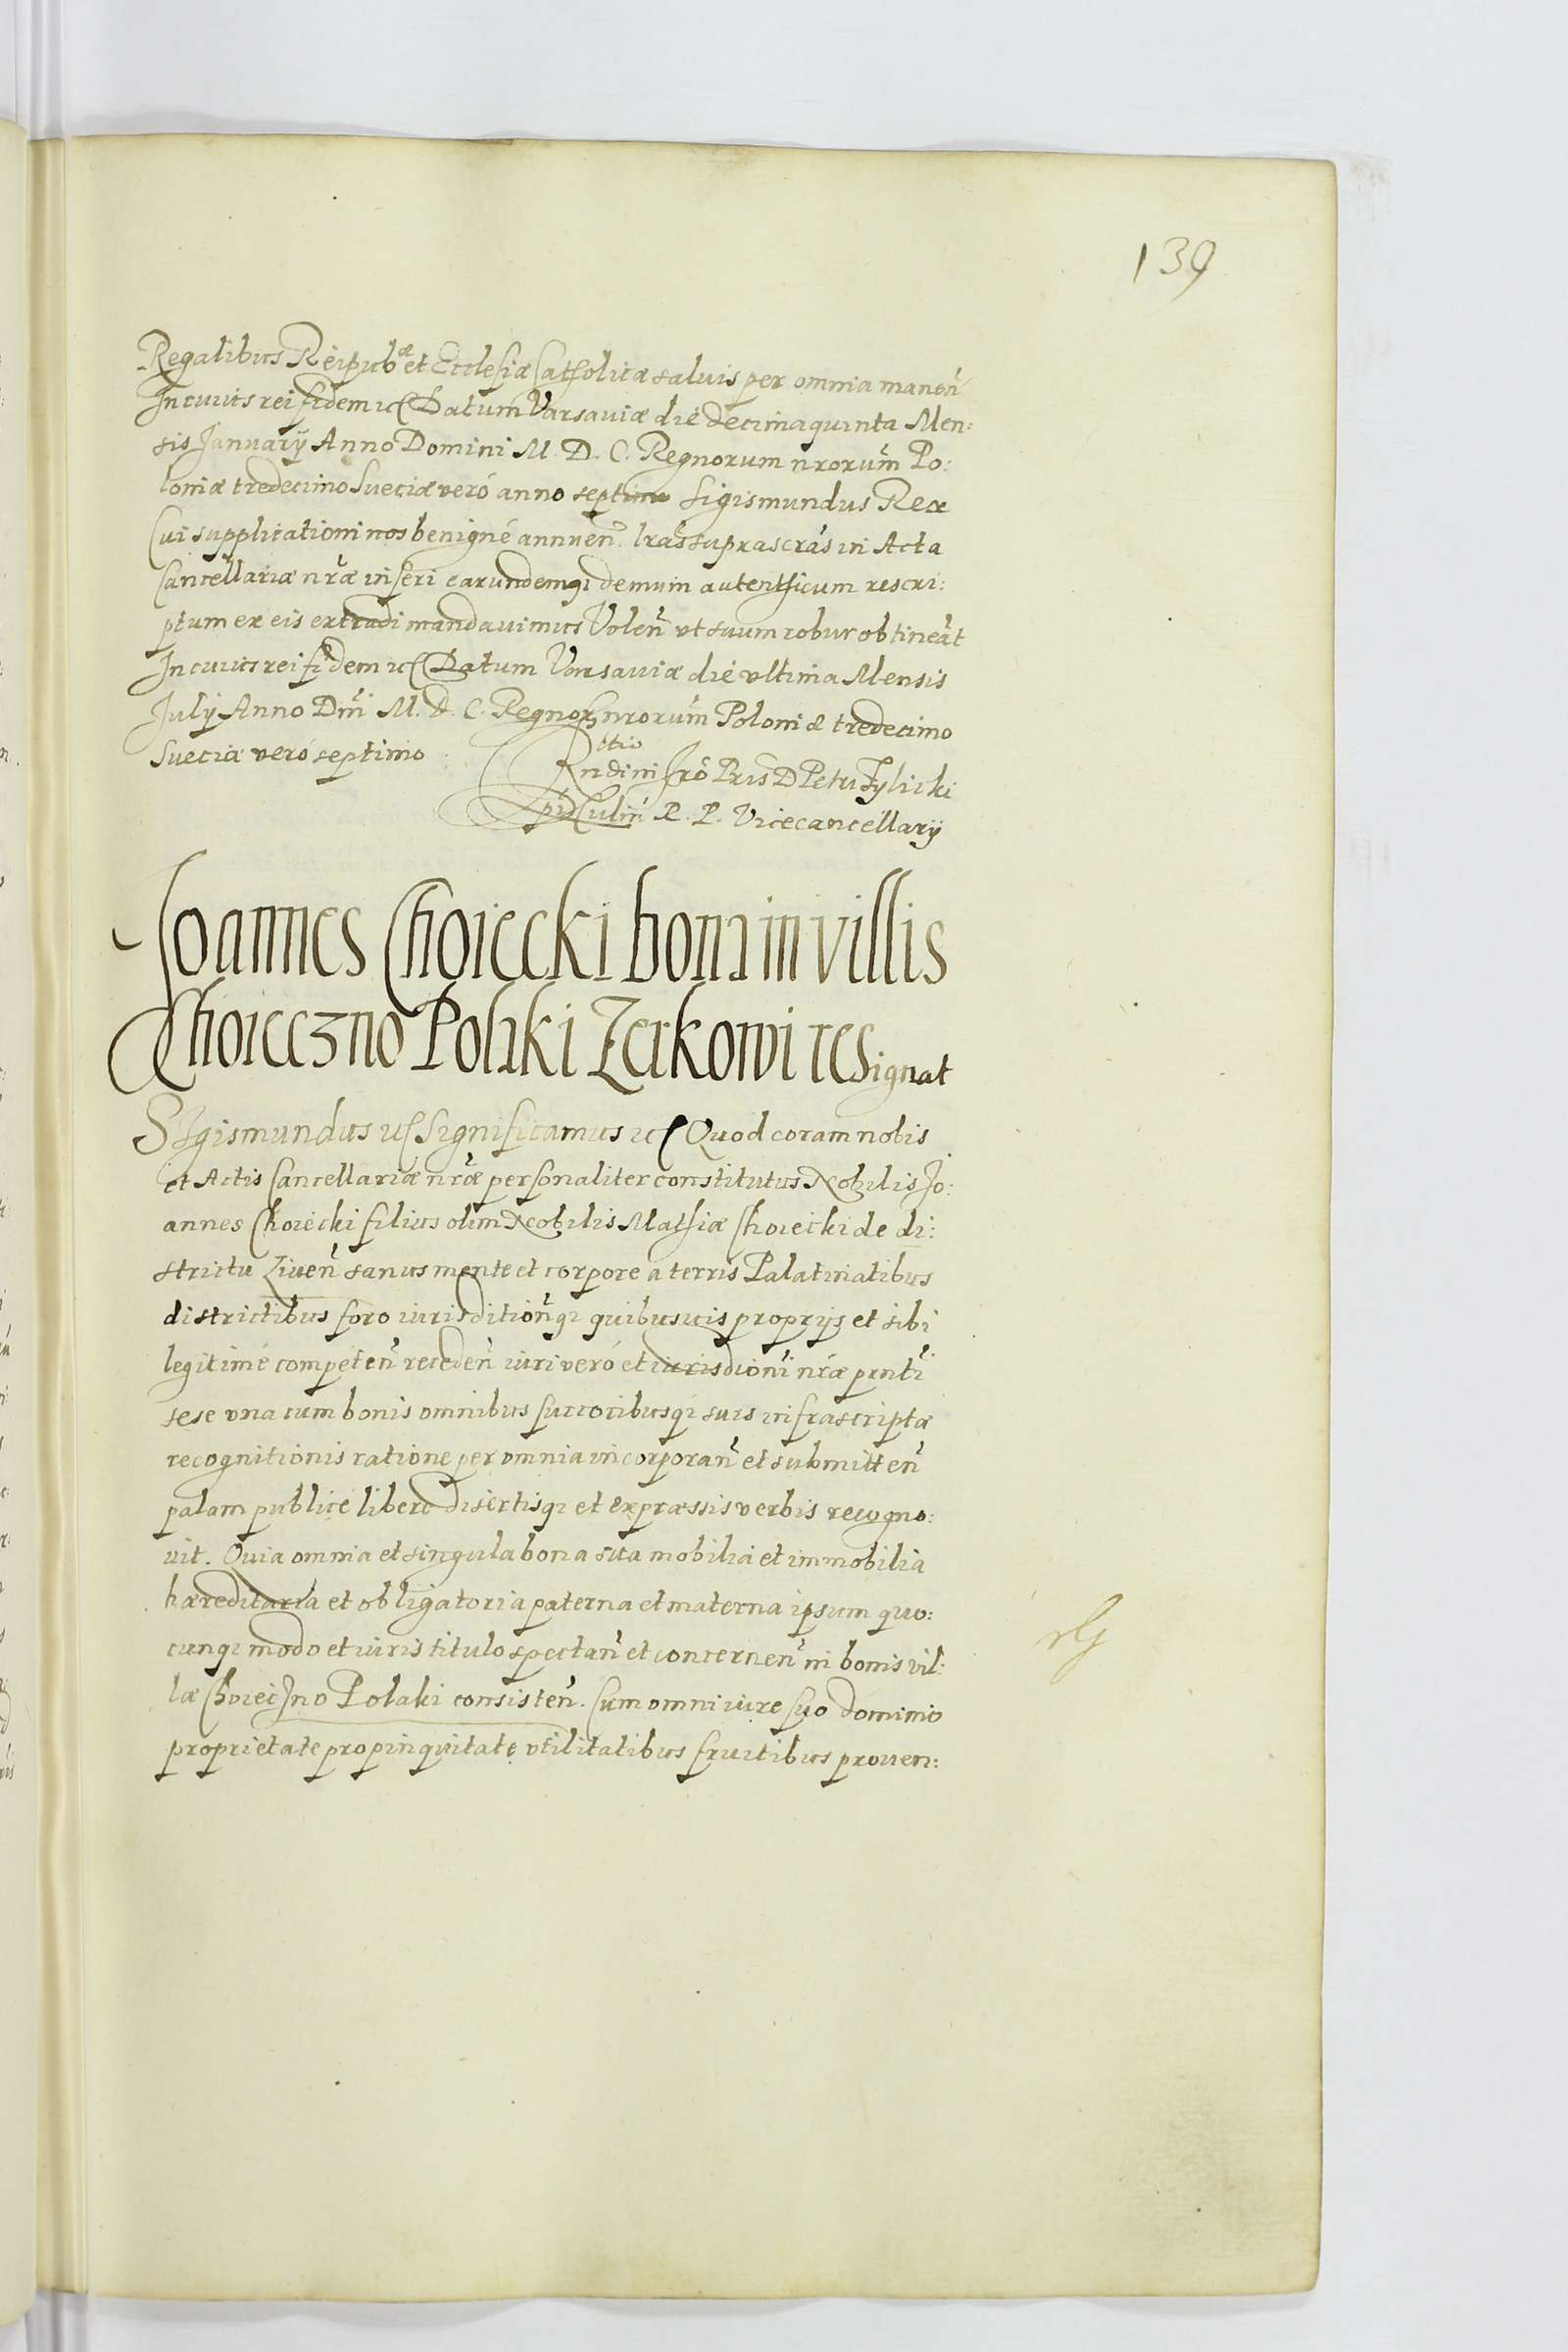 139
Regalibus Reipubæ et Ecclesiæ Catholicæ saluis per omnia manen̄
In cuius rei fidem ec Datum Varsauiæ die decima quinta Men:
sis January Anno Domini M. D. C. Regnorum nrorum Po:
loniæ tredecimo Sueciæ veró anno septimo Sigismundus Rex
Cui supplicationi nos benigné annuen̄ lras suprascras in Acta
Cancellariæ nræ inseri earundemq demum autenthicum rescri:
ptum ex eis extradi mandauimus Volen̄ vt suum robur obtineat
In cuius rei fidem ec Datum Varsauiæ die vltima Mensis
July Anno Dni M. D. C. Regnor nrorum Poloniæ tredecimo
Sueciæ veró septimo
Rndini Pris D Petri Tylicki
Epi Culm R. P. Vicecancellary
Joannes Choiecki bona in villis
Choieczno Polaki Zerkowi resignat
Sigismundus ec Significamus ec Quod coram nobis
et Actis Cancellariæ nræ personaliter constitutus Nobilis Jo:
annes Choiecki filius olim Nobilis Mathiæ Choiecki de di:
strictu Liuen̄ sanus mente et corpore a terris Palatinatibus
districtibus foro iurisdition̄q quibusuis proprijs et sibi
legitimé competen̄ receden̄ iuri veró et iurisdioni nræ pnti
sese vna cum bonis omnibus succoribusq suis infrascriptæ
recognitionis ratione per omnia incorporan̄ et submitten̄
palam publicé liberé disertisq et expræssis verbis recogno:
uit. Quia omnia et singula bona sua mobilia et immobilia
hæreditaria et obligatoria paterna et materna ipsum quo:
cunq modo et iuris titulo spectan̄ et concernen̄ in bonis vil:
læ Choieczno Polaki consisten̄. Cum omni iure suo dominio
proprietate propinquitate vtilitatibus fructibus prouen: